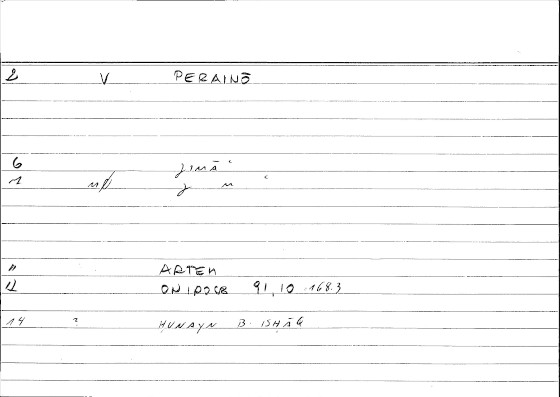 2 V PERAINŌ
6 ǧimāʿ
1 ǧ m ʿ
11 ARTEM
12 ONIROCR 91,10 168.3
14 ? ḤUNAYN B. ISḤĀQ